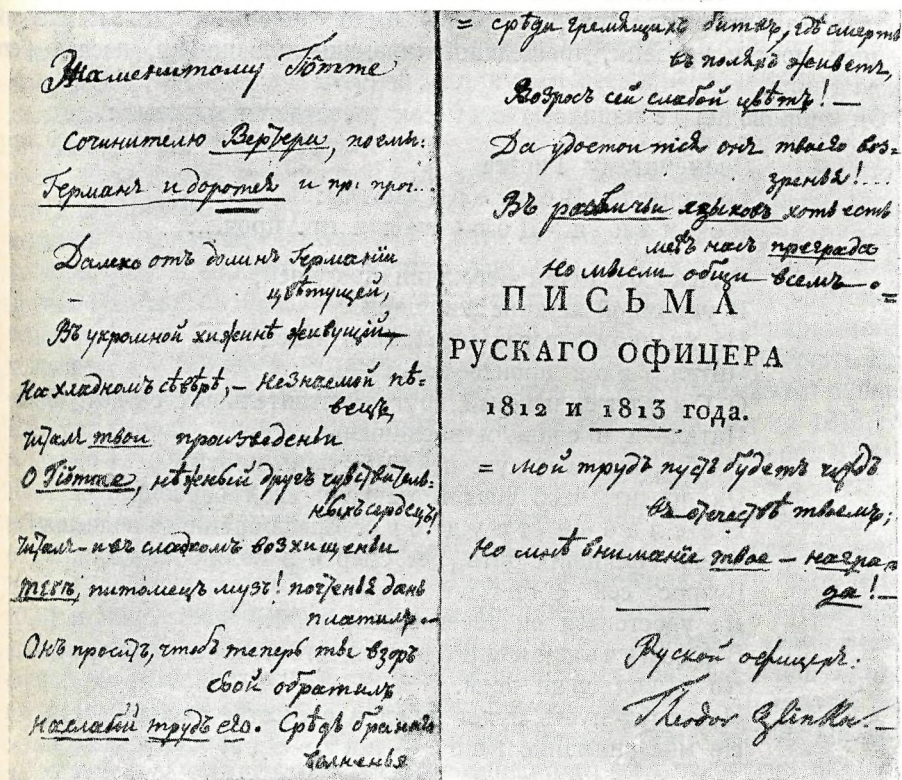 Знаменитому Гётте
Сочинителю Вертера, поемы:
Германъ и доротея и пр: проч...
Далеко отъ долинъ Германіи
цвѣтущей,
Въ укромной хижинѣ живущій
На хладномъ сѣверѣ, – незнаемой пѣ=
вецъ,
Читалъ твои произведеньи
О Гётте, нѣжный другъ чувствитель-
ныхъ сердецъ!
Читалъ – и въ сладкомъ возхищеньи
тебѣ, питомецъ музъ! почтенья дань
платилъ. –
Онъ проситъ, чтобъ теперь ты взоръ
свой обратилъ
на слабый трудъ его. Средь бранного
волненья
= срѣди гремящихъ битвъ, гдѣ смерть
въ поляхъ живетъ,
Возросъ сей слабой цвѣтъ! –
Да удостоится онъ твоего воз=
зренья!...
Въ различьи языковъ хоть есть
межъ нас преграда
Но мысли общи всемъ – .
=
ПИСЬМА
РУСКАГО ОФИЦЕРА
1812 и 1813 года.
= мой трудъ пусть будетъ чуждъ
въ отечествѣ твоемъ;
Но мнѣ вниманіе твое – награ=
да! –
Руской офицеръ.
Theodor Glinka. –